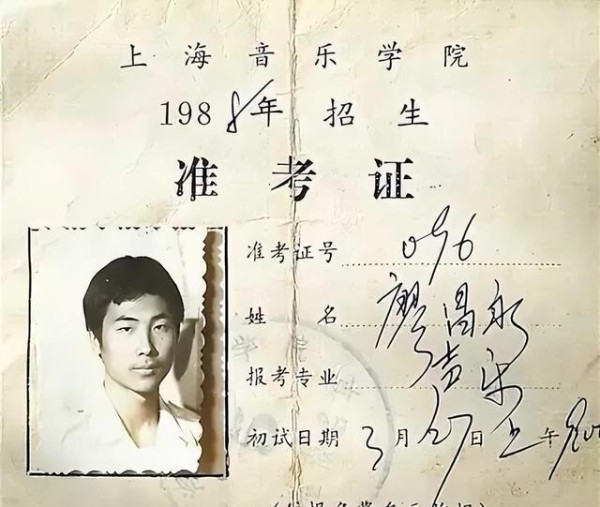 上海音乐学院
1988年招生
准考证
准考证号 096
姓名 廖昌永
报考专业 声乐
初试日期 3月27日上午